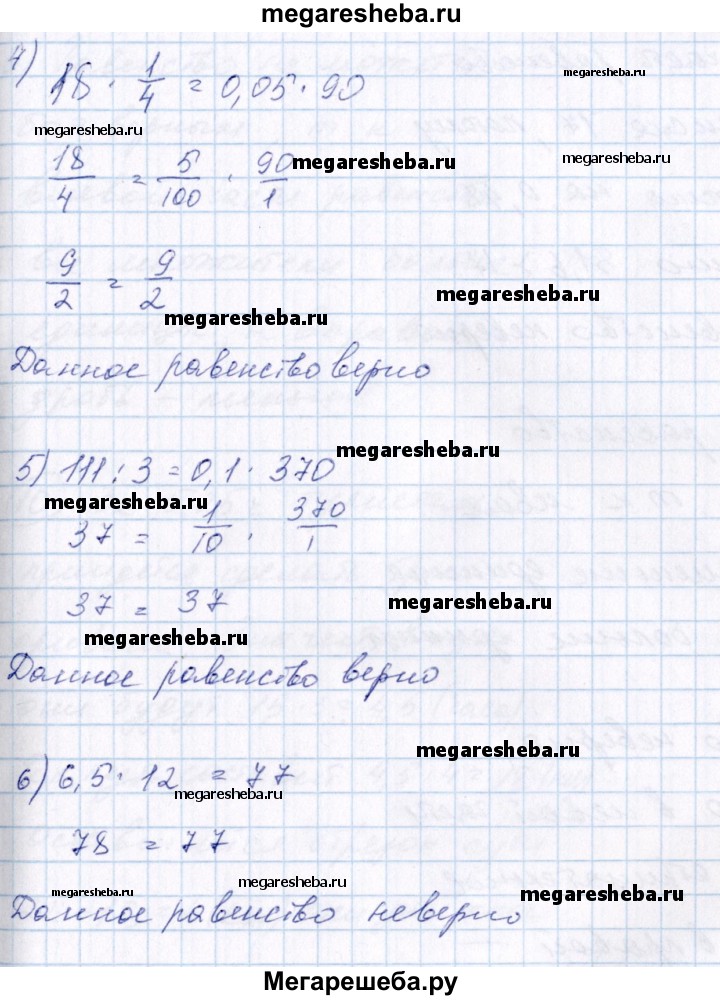 megaresheba.ru
4) 18 · 1/4 = 0,05 · 90
megaresheba.ru
megaresheba.ru
megaresheba.ru
megaresheba.ru
18/4 = 5/100 · 90/1
9/2 = 9/2
megaresheba.ru
megaresheba.ru
Данное равенство верно
megaresheba.ru
5) 111 : 3 = 0,1 · 370
megaresheba.ru
37 = 1/10 · 370/1
37 = 37
megaresheba.ru
megaresheba.ru
Данное равенство верно
megaresheba.ru
6) 6,5 · 12 = 77
megaresheba.ru
78 = 77
megaresheba.ru
megaresheba.ru
megaresheba.ru
Данное равенство неверно
Мегарешеба.ру